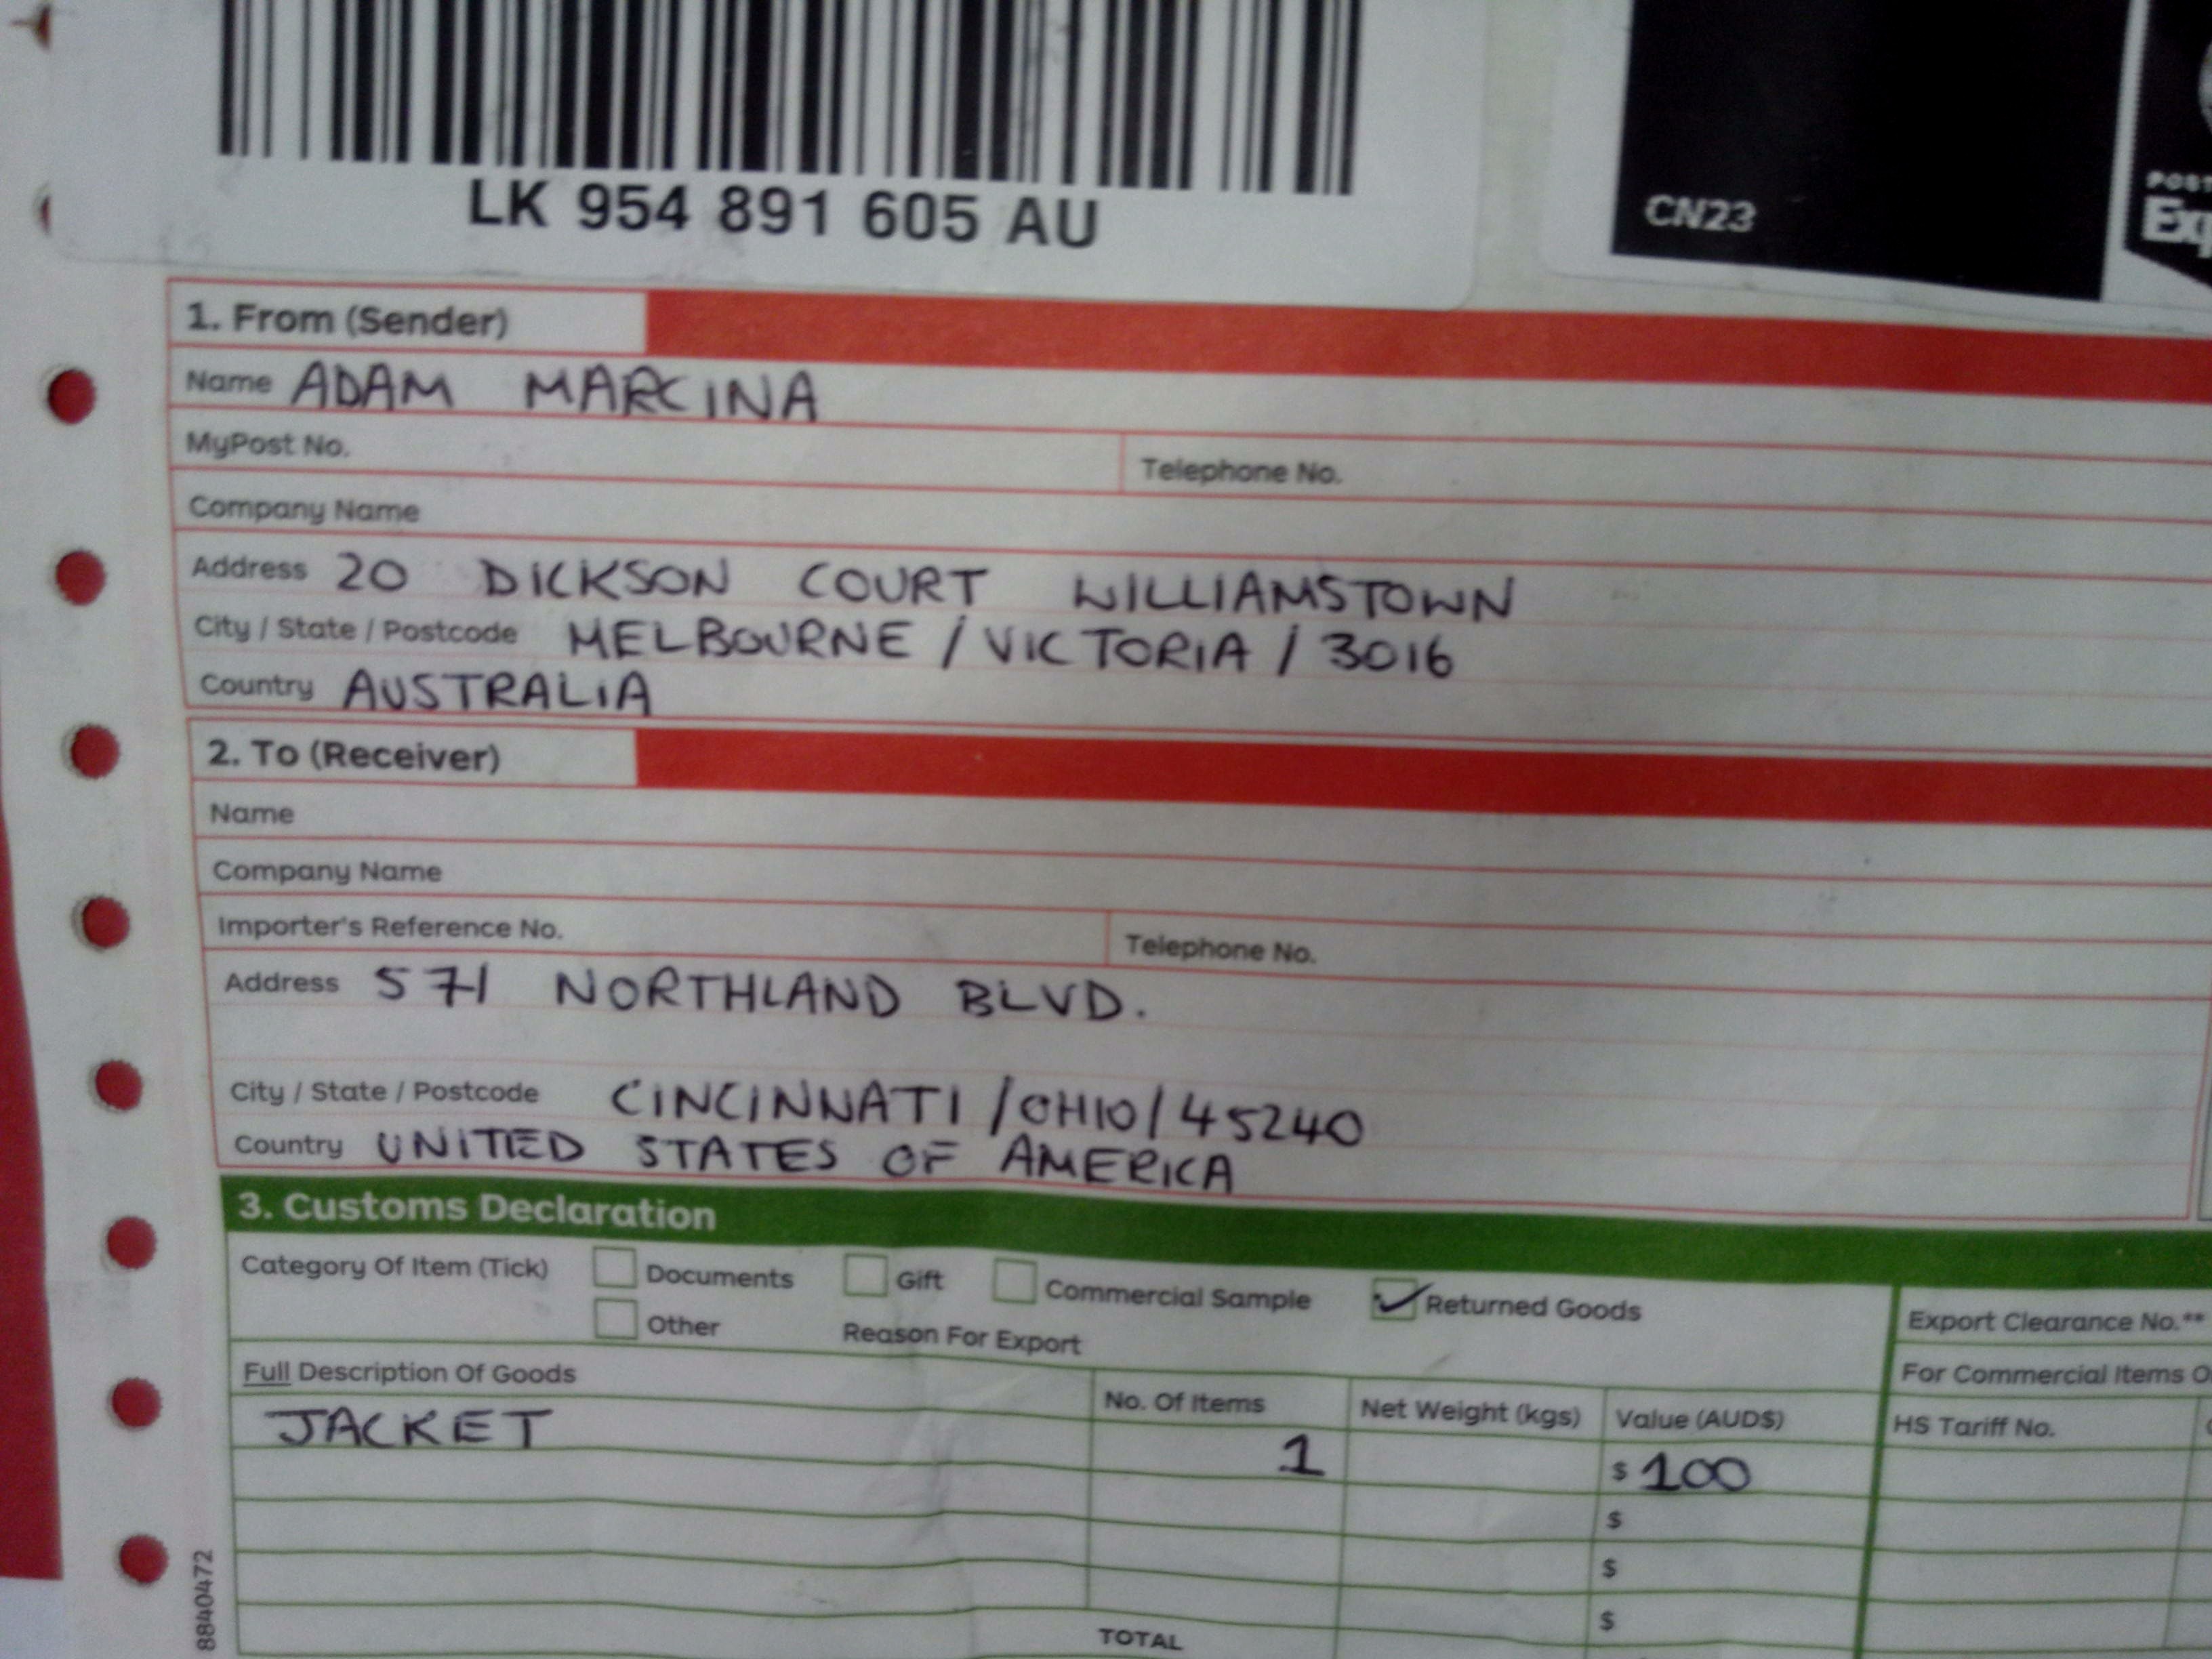 LK 954 891 605 AU
CN23
POST
1. From (Sender)
Name ADAM MARCINA
MyPost No. Telephone No.
Company Name
Address 20 DICKSON COURT WILLIAMSTOWN
City / State / Postcode MELBOURNE / VICTORIA / 3016
Country AUSTRALIA
2. To (Receiver)
Name
Company Name
Importer's Reference No. Telephone No.
Address 571 NORTHLAND BLVD.
City / State / Postcode CINCINNATI / OHIO / 45240
Country UNITED STATES OF AMERICA
3. Customs Declaration
Category Of Item (Tick) Documents Gift Commercial Sample Returned Goods
Other Reason For Export
Export Clearance No.**
For Commercial Items
Full Description Of Goods No. Of Items Net Weight (kgs) Value (AUD$) HS Tariff No.
JACKET 1 $ 100
$
$
$
TOTAL
8840472